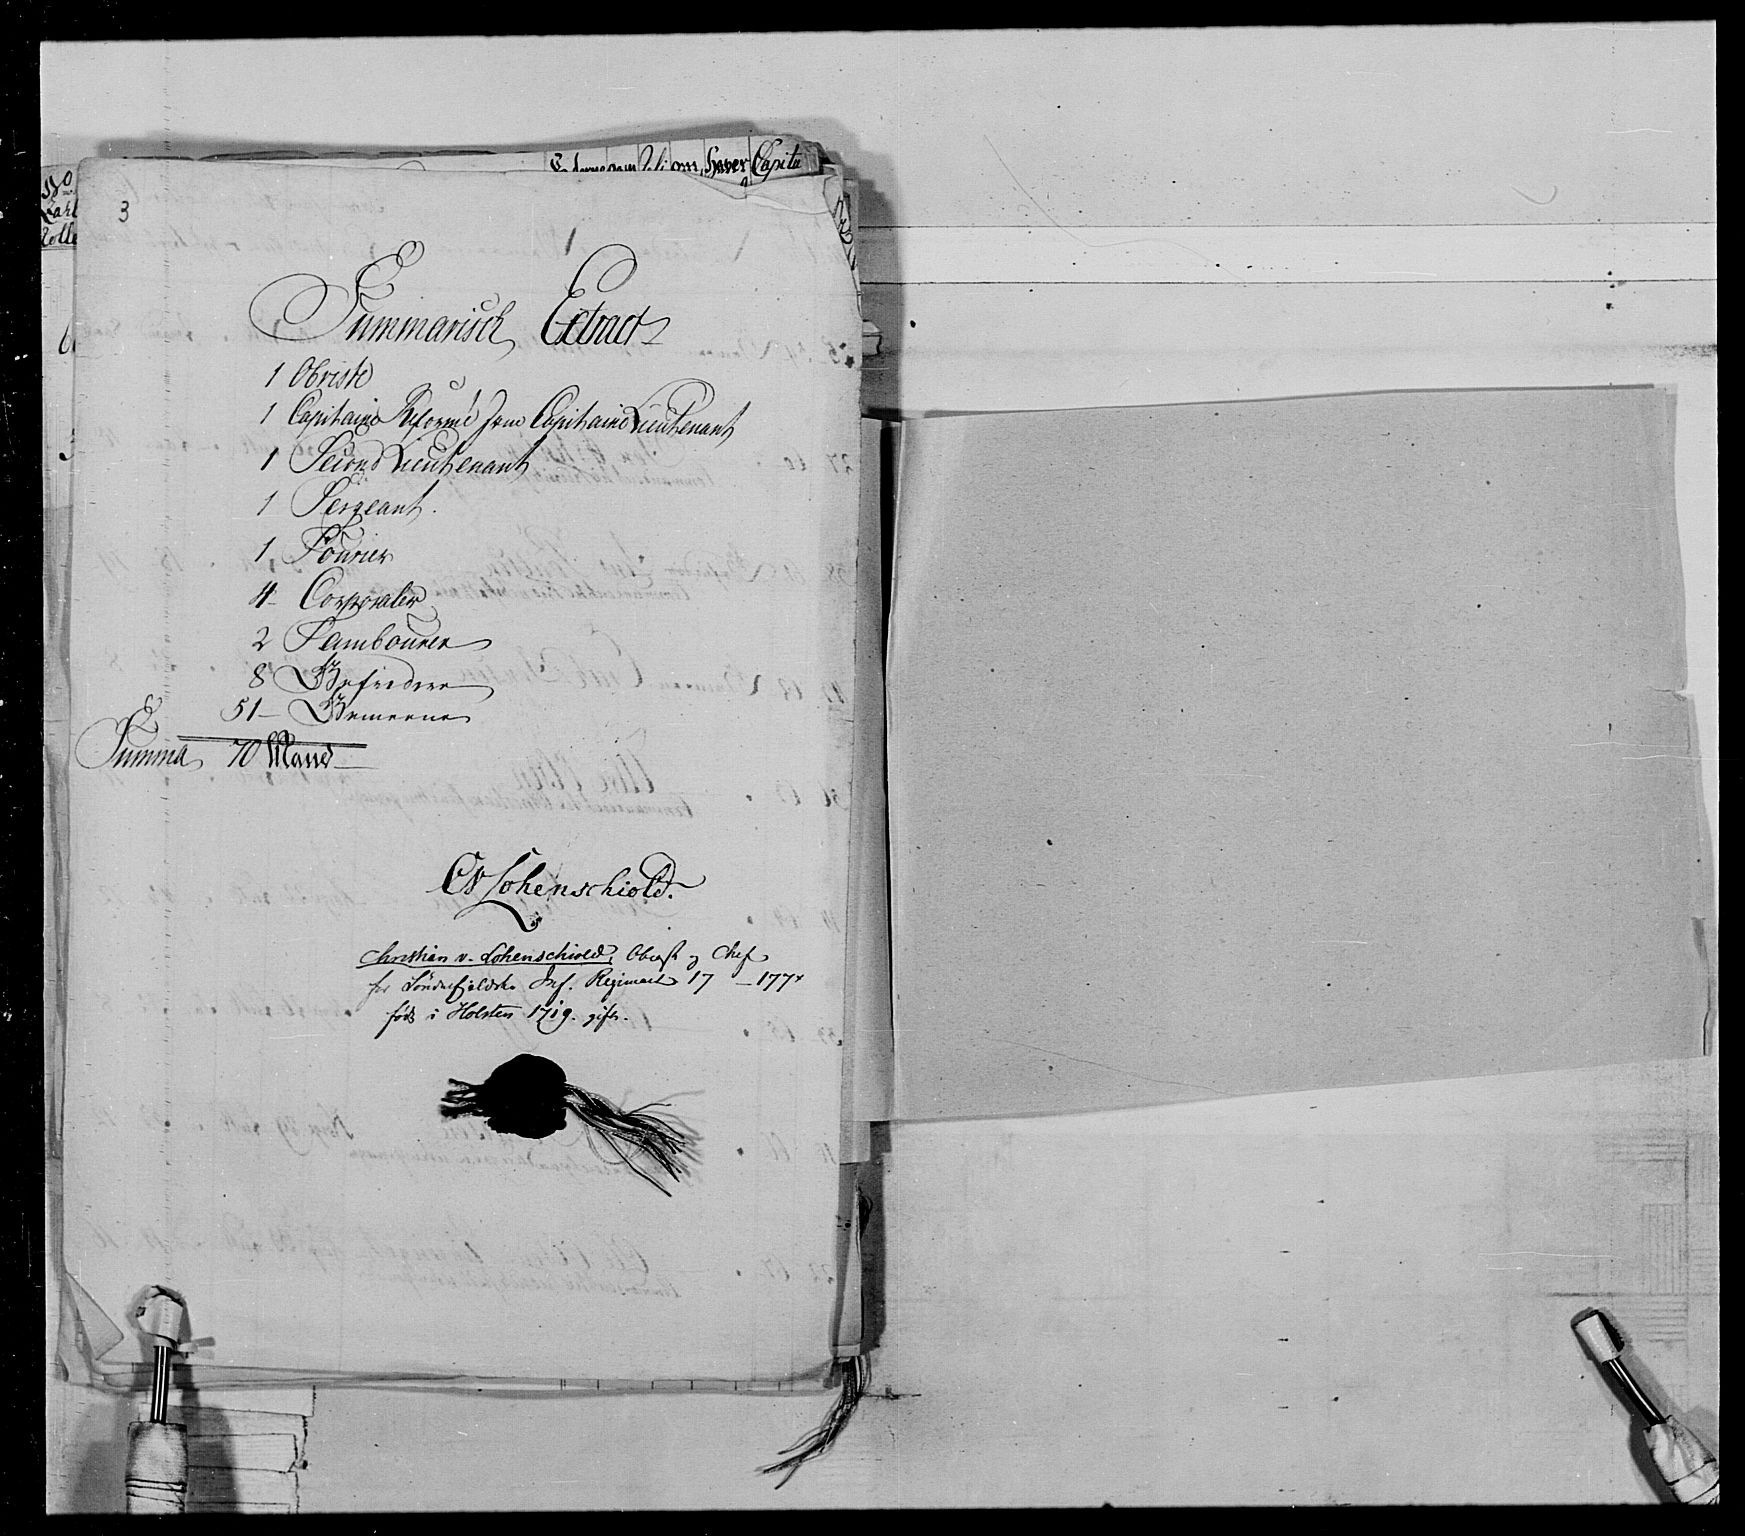 3
Summarisch Extract
1 Obriste
1 Capitaine Reformé som Capitaine Lieutenant
1 Second Lieutenant
1 Sergeant.
1 Fourier
4 - Corporaler
2 Tambourer
8 Gefreidere
51 - Gemeene
Summa 70 Mand
CvLohenschiold.
Christian v. Lohenschiold, Oberst og Chef
for Søndenfjeldske Inf. Regiment 17 — 177
født i Holsten 1719. gift.